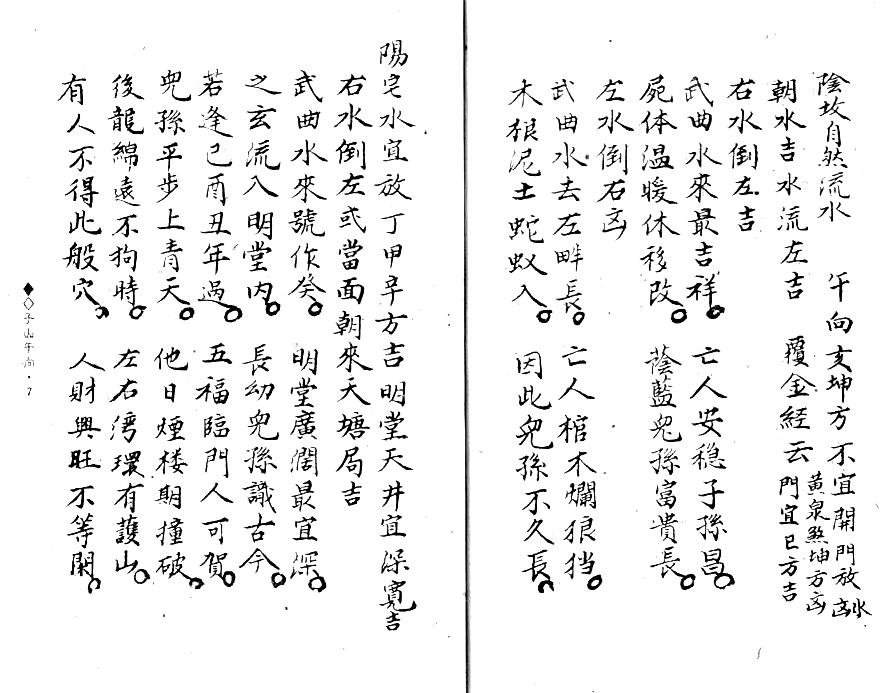 陰坟自然流水　午向亥坤方不宜開門放水凶
朝水吉水流左吉　覆金經云黃泉煞坤方凶門宜巳方吉
右水倒左吉
武曲水來最吉祥。亡人安穩子孫昌。
屍体温暖休移改。蔭藍兒孫富貴長。
左水倒右凶
武曲水去左畔長。亡人棺木爛狼挡。
木狼泥土蛇蚁入。因此兒孫不久長。
陽宅水宜放丁甲辛方吉明堂天井宜深寬吉
右水倒左或當面朝來天塘局吉
武曲水來號作癸。明堂廣濶最宜深。
之玄流入明堂内。長幼兒孫識古今。
若逢已酉丑年過。五福臨門人可賀。
兒孫平步上青天。他日煙楼期撞破。
後龍綿遠不狗時。左右湾環有護山。
有人不得此般穴。人財興旺不等閑。
子山午向・7